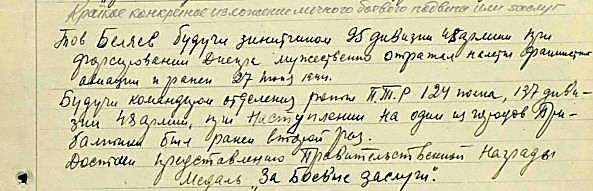 Краткое конкретное изложение личного боевого подвига или заслуг
Тов Беляев будучи зенитчиком 25 дивизии 48 армии при
форсировании Днепра мужественно отражал налеты фашистской
авиации и ранен 27 1944.
Будучи командиром отделения роты П.Т.Р 124 полка, 137 диви-
зии 48 армии, при Наступлении на один из городов При-
балтики был ранен второй раз.
Достоин представлению Правительственной Награды
Медаль "За Боевые заслуги".